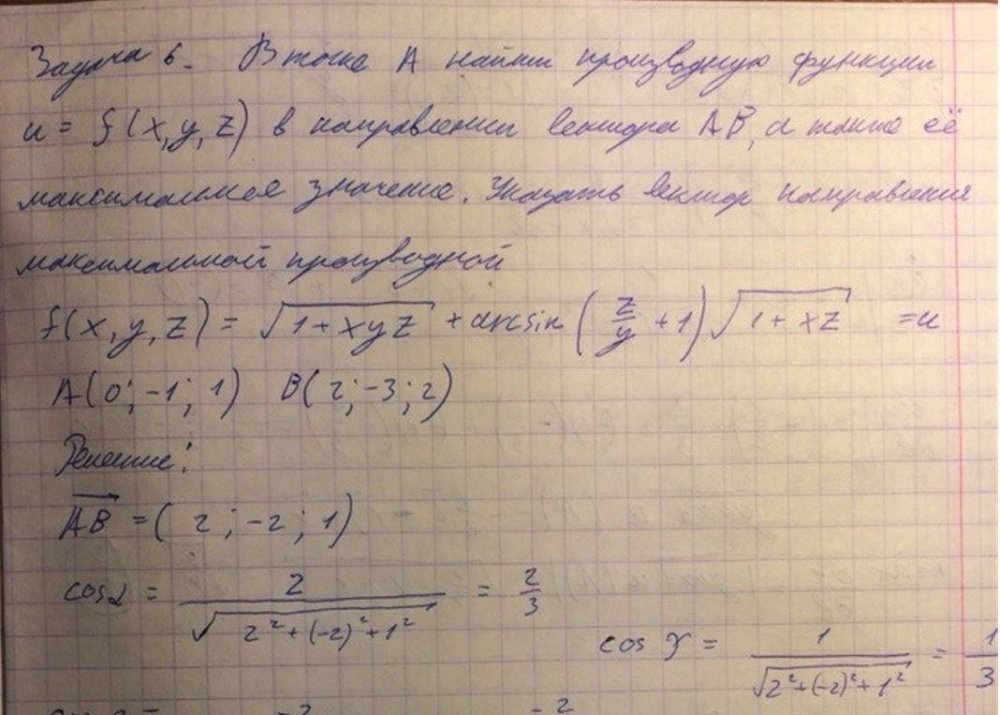 Задача 6. В точке A найти производную функции
u = f(x,y,z) в направлении вектора AB, а также её
максимальное значение. Указать вектор направления
максимальной производной
f(x,y,z) = √(1+xyz) + arcsin(z/y + 1)√(1+xz) = u
A(0;-1;1) B(2;-3;2)
Решение:
AB = (2;-2;1)
cosα = 2/√(2²+(-2)²+1²) = 2/3
cos γ = 1/√(2²+(-2)²+1²) = 1/3
-2 -2